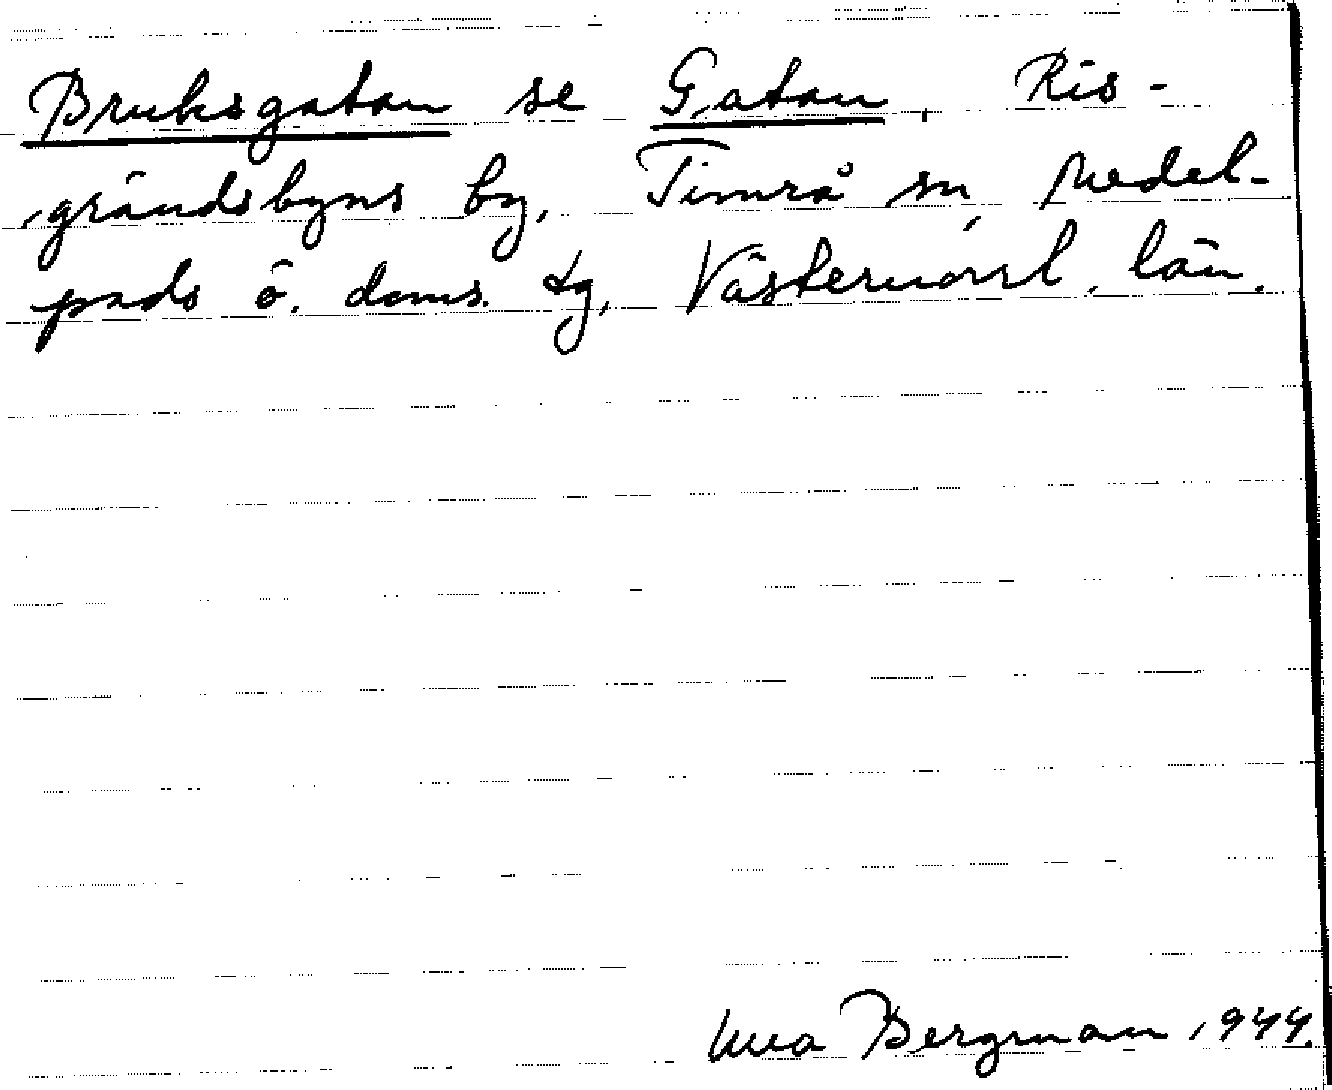 Bruksgatan se Gatan, Ris-
gründsbyns by, Timrå sn, Medel-
pads ö. doms. tg, Västernorrl. län.
Bergman 1944.